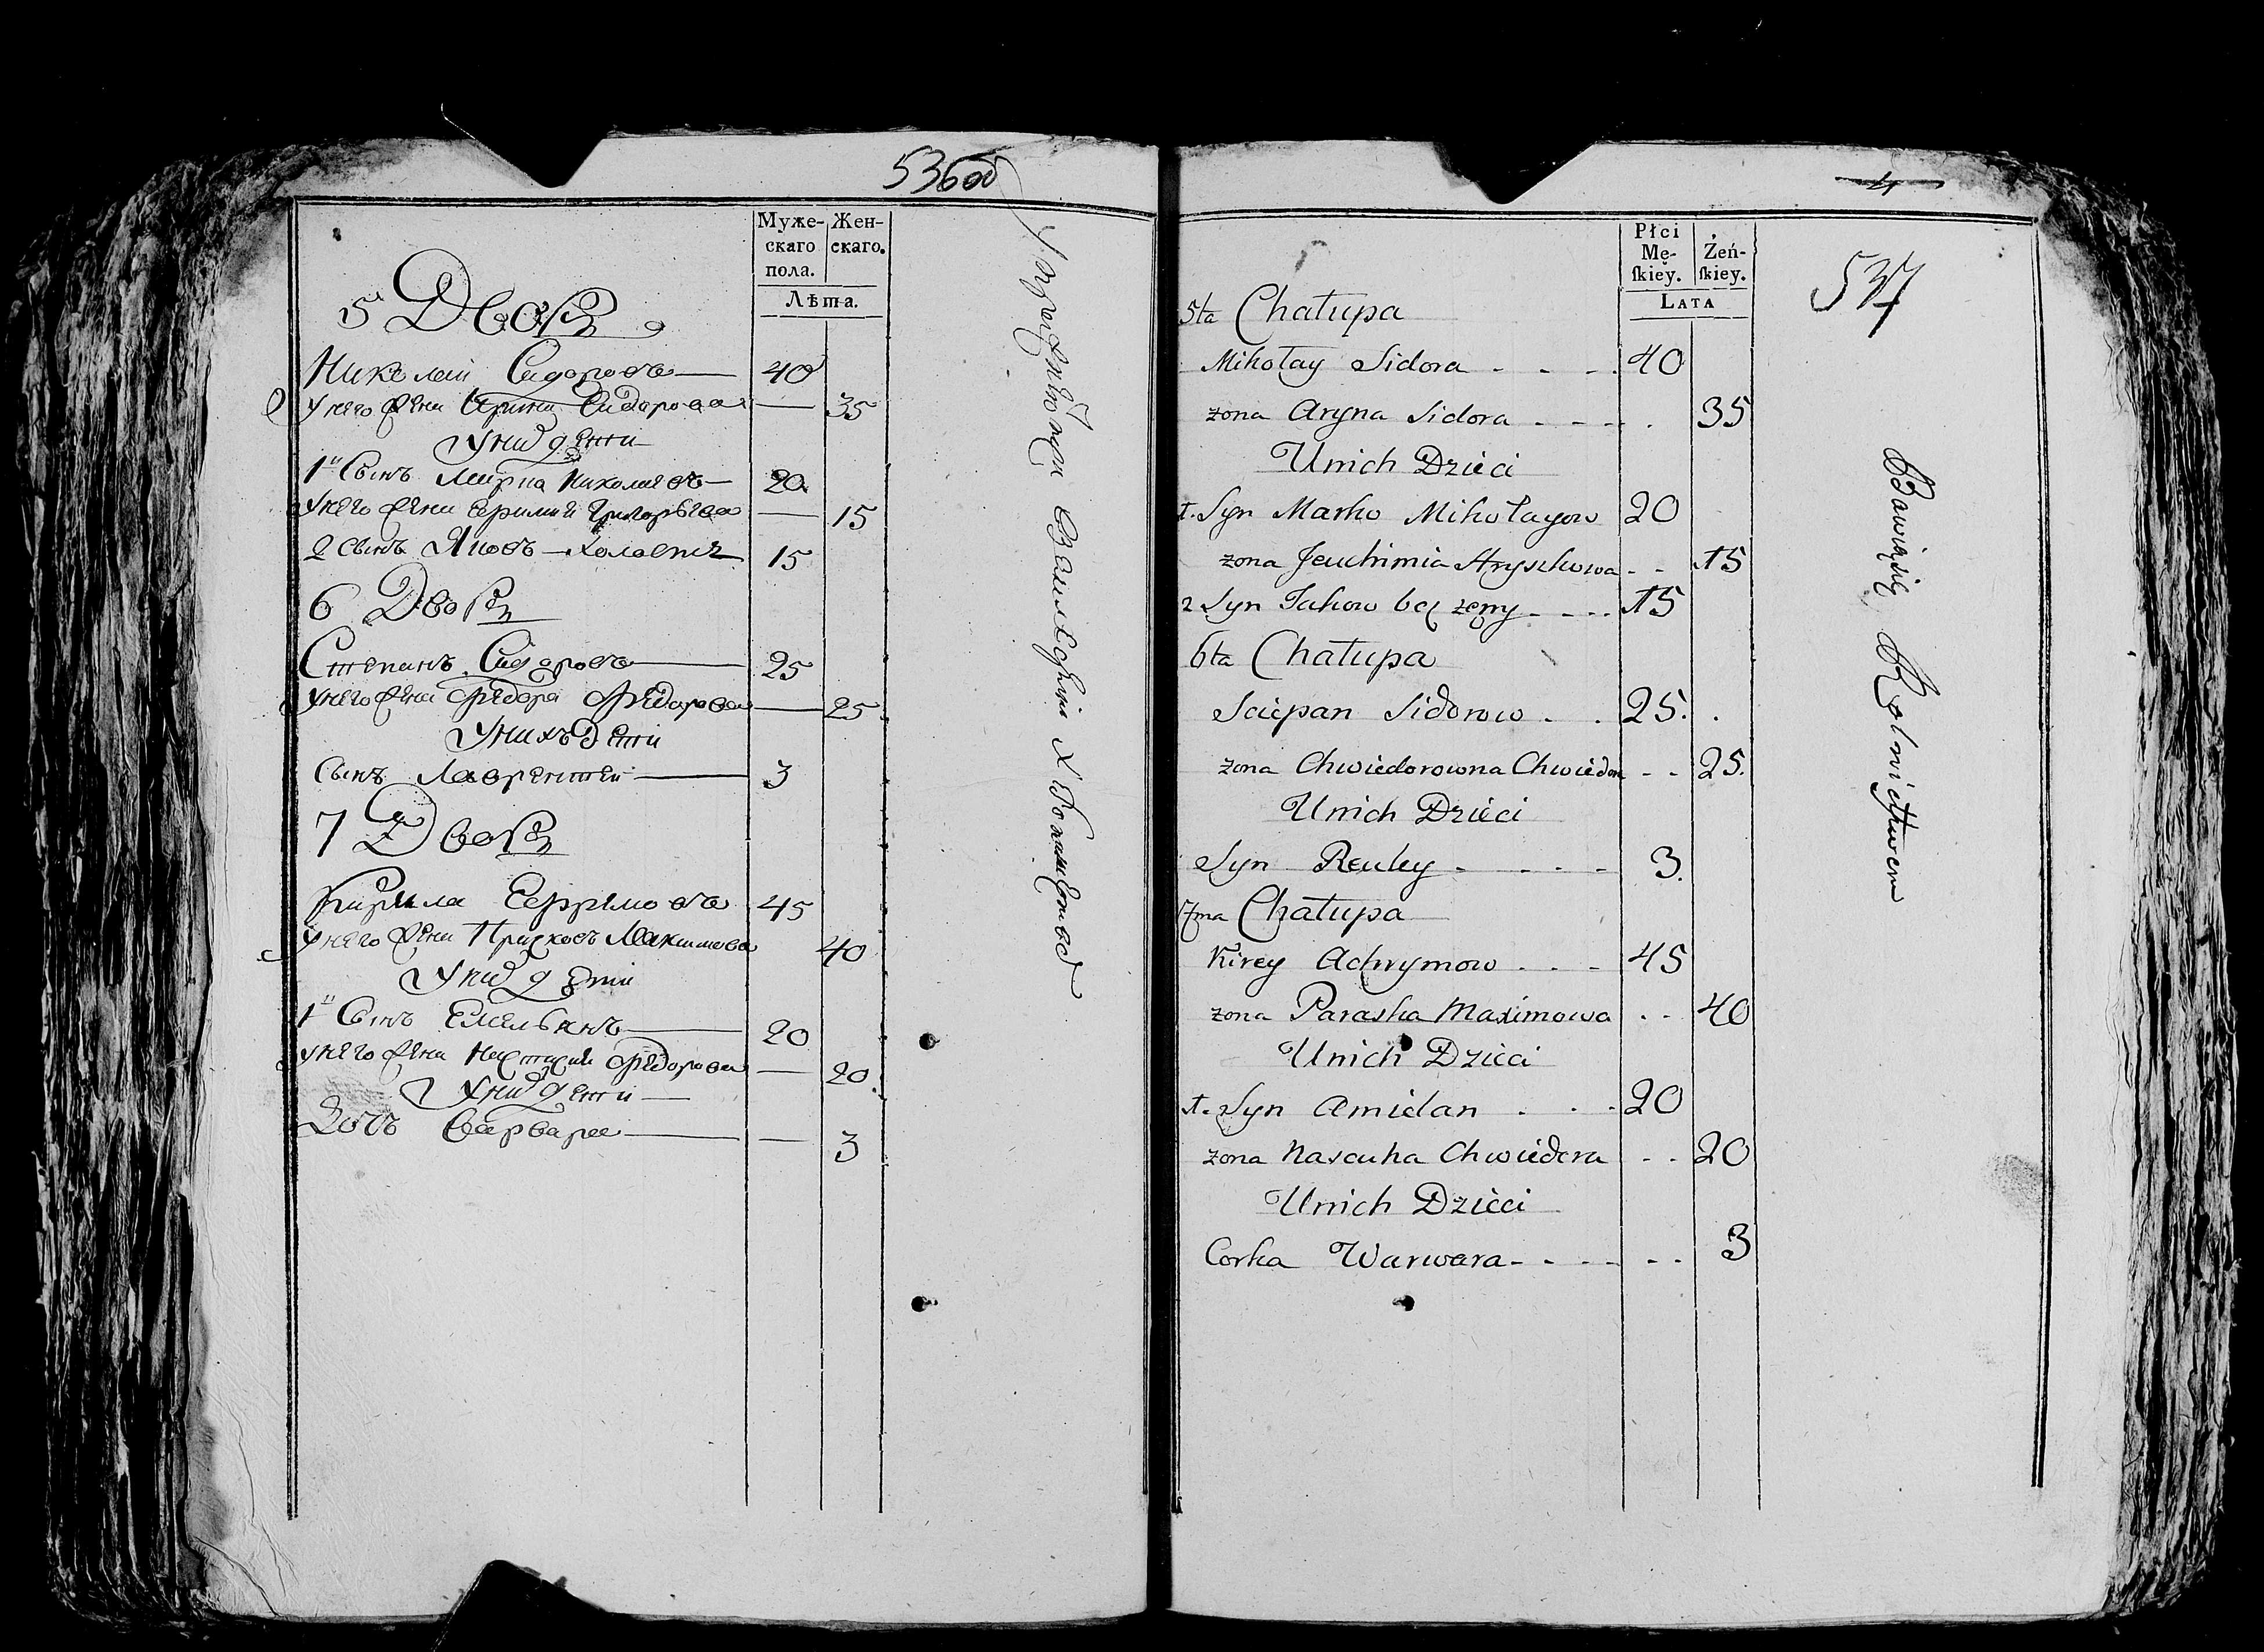 536об
Муже-
скаго
пола.
Жен-
скаго.
Лѣта.
5 Дворъ
Николай Сидоровъ 40
у него жена Арина Сидорова 35
У них дети
1й Сынъ Марка Николаевъ 20
у него жена Ефимия Григорьева 15
2 сынъ Яковъ холостъ 15
6 Дворъ
Степанъ Сидоровъ 25
у него жена Федора Федорова 25
У нихъ дети
Сынъ Лаврентей 3
7 Дворъ
Кирила Ефримовъ 45
у него жена Прасковъ Максимова 40
У них дети
1й Сынъ Емельянъ 20
у него жена Настасия Федорова 20
У них дети
Дочь Варвара 3
4
537
Płci
Mę-
ſkiey.
Żeń-
ſkiey.
LATA
5ta Chałupa
Mikołay Sidora 40
zona Aryna Sidora 35
Unich Dzieci
1. Syn Marko Mikołayow 20
zona Jeuchimia Hryszkowa 15
2 Syn Jakow bez zęny 15
6ta Chałupa
Sciepan Sidorow 25.
zona Chwiedorowna Chwiedora 25.
Unich Dzieci
Syn Reuley 3.
7ma Chałupa
Kirey Achrymow 45
zona Paraska Maximowa 40
Unich Dzieci
1. Syn Amielan 20
zona Nasciuha Chwiedora 20
Unich Dzieci
Corka Warwara 3
Bawią się Rolnictwem